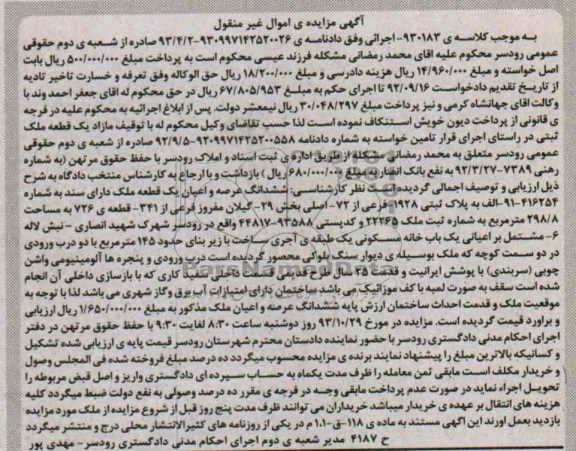 آگهی مزایده ی اموال غیر منقول
به موجب کلاسه ی ۹۳۰۱۸۳-اجرائی وفق دادنامه ی ۹۳۰۹۹۷۱۴۲۵۲۰۰۲۶-۹۳/۴/۲ صادره از شعبه ی دوم حقوقی
عمومی رودسر محکوم علیه اقای محمد رمضانی مشکله فرزند عیسی محکوم است به پرداخت مبلغ ۵۰۰/۰۰۰/۰۰۰ ریال بابت
اصل خواسته و مبلغ ۱۴/۹۶۰/۰۰۰ ریال هزینه دادرسی و مبلغ ۱۸/۲۰۰/۰۰۰ ریال حق الوکاله وفق تعرفه و خسارت تاخیر تادیه
از تاریخ تقدیم دادخواست ۹۲/۰۹/۱۶ تا اجرای حکم به مبلغ ۶۷/۸۰۵/۹۵۳ ریال در حق محکوم له اقای جعفر احمد وند با
وکالت اقای جهانشاه کرمی و نیز پرداخت مبلغ ۳۰/۰۴۸/۲۹۷ ریال نیمعشر دولت. پس از ابلاغ اجرائیه به محکوم علیه در فرجه
ی قانونی از پرداخت دیون خویش استنکاف نموده است لذا حسب تقاضای وکیل محکوم له با توقیف مازاد یک قطعه ملک
ثبتی در راستای اجرای قرار تامین خواسته به شماره دادنامه ۹۲۰۹۹۷۱۴۲۵۲۰۰۵۵۸-۹۲/۹/۵ صادره از شعبه ی دوم حقوقی
عمومی رودسر متعلق به محمد رمضانی مشکله از طریق اداره ی ثبت اسناد و املاک رودسر با حفظ حقوق مرتهن (به شماره
رهنی ۷۳۸۹-۹۲/۳/۲۷ به نفع بانک انصار به مبلغ ۶۸۰/۰۰۰/۰۰۰ ریال) بازداشت و با ارجاع به کارشناس منتخب دادگاه به شرح
ذیل ارزیابی و توصیف اجمالی گردیده است نظر کارشناسی: ششدانگ عرصه و اعیان یک قطعه ملک دارای سند به شماره
۴۱۶۲۵۴-۹۱-الف به پلاک ثبتی ۱۹۲۸ فرعی از ۷۲-اصلی بخش ۲۹-گیلان مفروز فرعی از ۳۴۱-قطعه ی ۷۲۶ به مساحت
۲۹۸/۸ مترمربع به شماره ثبت ملک ۲۲۲۶۵ و کدپستی ۹۳۵۸۸-۴۴۸۱۷ واقع در رودسر شهرک شهید انصاری - نبش لاله
۶- مشتمل بر اعیانی یک باب خانه مسکونی یک طبقه ی آجری ساخت با زیر بنای حدود ۱۴۵ مترمربع با دو درب ورودی
در دو سمت کوچه که ملک بوسیله ی دیوار سنگ بلوکی محصور گردیده است درب ورودی و پنجره ها آلومینیومی واشن
چوبی (سربندی) با پوشش ایرانیت و قدمت ۲۵ سال دیوارهای داخلی سفید کاری که با بازسازی داخلی آن انجام
شده است سقف به صورت لمبه با کف موزائیک می باشد ساختمان دارای امتیازات آب برق وگاز شهری می باشد لذا با توجه به
موقعیت ملک و قدمت احداث ساختمان ارزش پایه ششدانگ عرصه و اعیان ملک مذکور به مبلغ ۱/۶۵۰/۰۰۰/۰۰۰ ریال ارزیابی
و براورد قیمت گردیده است. مزایده در مورخ ۹۳/۱۰/۲۹ روز دوشنبه ساعت ۸:۳۰ لغایت ۹:۳۰ با حفظ حقوق مرتهن در دفتر
اجرای احکام مدنی دادگستری رودسر با حضور نماینده دادستان محترم شهرستان رودسر قیمت پایه ی ارزیابی شده تشکیل
و کسانیکه بالاترین مبلغ را پیشنهاد نمایند برنده ی مزایده محسوب میگردد ده درصد مبلغ فروخته شده فی المجلس وصول
و خریدار مکلف است مابقی ثمن معامله را ظرف مدت یکماه به حساب سپرده ای دادگستری واریز و اصل قبض مربوطه را
تحویل اجراء نماید در صورت عدم پرداخت مابقی وجه در فرجه ی مقرر ده درصد وصولی به نفع دولت ضبط میگردد کلیه
هزینه های انتقال بر عهده ی خریدار میباشد خریداران می توانند ظرف مدت پنج روز قبل از شروع مزایده از ملک مورد مزایده
بازدید بعمل اورند این اگهی مستند به ماده ی ۱۱۸-ق-۱.۱ م در یکی از روزنامه های کثیرالانتشار محلی درج و منتشر میگردد
ح ۴۱۸۷ مدیر شعبه ی دوم اجرای احکام مدنی دادگستری رودسر- مهدی پور